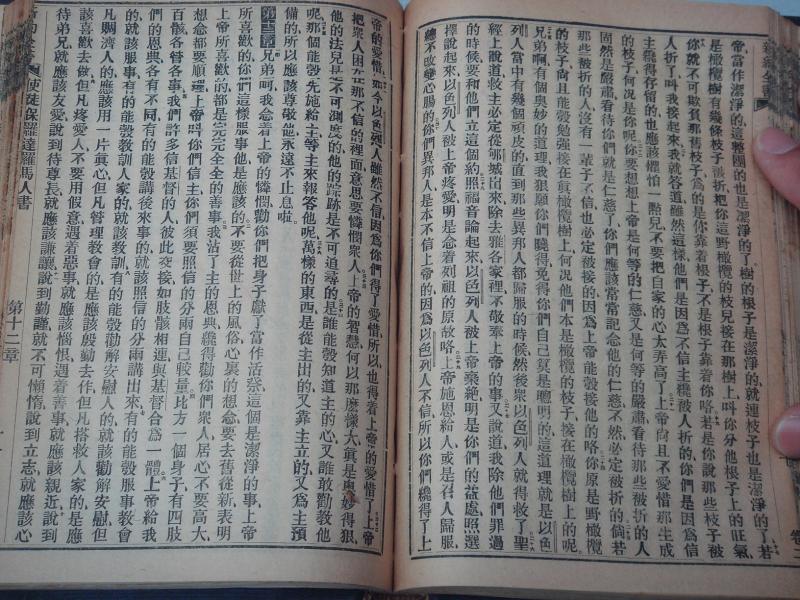 帝當作潔淨的這整團的也是潔淨的了樹的根子是潔淨的就連枝子也是潔淨的了若
是橄欖樹有幾條枝子被折你這野橄欖的枝兒接在那樹上叫你分他根子上的旺氣
你就不可欺負那舊枝子爲的是你靠着根子不是根子靠着你咯若是你說那些枝子被
人折了叫我接起來我就答道雖然這樣他們是因爲不信主纔被人折的你們是因爲信
主纔得存留的也應該懼怕一點兒不要把自家的心太弄高了上帝尙且不愛惜那生成
的枝子何況是你呢你要想想上帝是何等的仁慈又是何等的嚴肅看待那些被折的人
固然是嚴肅看待你們就是仁慈了你們應該常常記念他的仁慈不然必定被折的倘若
那些被折的人沒有一輩子不信也必定被接的因爲上帝能彀接他的咯你原是野橄欖
的枝子尙且能彀勉強接在眞橄欖樹上何況他們本是橄欖的枝子接在橄欖樹上的呢
兄弟啊有個奧妙的道理我狠願你們曉得免得你們自己算是聰明的這道理就是以色
列人當中有幾個頑皮的直到那些異邦人都歸服的時候然後衆以色列人就得救了聖
經上說道救主必定從郇城出來除去雅各家裡不敬奉上帝的事又說道我除他們罪過
的時候要和他們立這個約照福音論起來以色列人被上帝棄絶明是你們的益處照選
擇說起來以色列人被上帝疼愛明是念着列祖的原故咯上帝施恩給人或是召人歸服
總不改變心腸的你們異邦人是本不信上帝的因爲以色列人不信所以你們纔得了上
帝的愛惜如今以色列人雖然不信因爲你們得了愛惜所以也得着上帝的愛惜了上帝
把衆人困在那不信的裡面意思要憐憫衆人上帝的智慧何以那麽樣大眞是奧妙得狠
他的法兒是不可測度的他的踪跡是不可追尋的是誰能彀知道主的心又誰敢勸教他
呢那個能彀先施給主等主來報答他呢萬樣的東西是從主出的又靠主立的又爲主預
備的所以應該尊敬他永遠不止息啦
第十二章兄弟呵我念着上帝的憐憫勸你們把身子獻了當作活祭這個是潔淨的事上帝
所喜歡的你們這樣服事他是應該的不要從世上的風俗心裏的想念要去舊從新表明
上帝所喜歡的都是完完全全的善事我沾了主的恩典纔得勸你們衆人居心不要高大
想念都要順理上帝叫你們信主你們須要照信的分兩自己較量比方一個身子有四肢
百骸各管各事我們許多信基督的人彼此交接如肢骸相連與基督合爲一體上帝給我
們的恩典各有不同有的能彀講後來事的就該照信的分兩講出來有的能彀服事教會
的就該服事有的能彀教訓人家的就該教訓有的能彀勸解安慰人的就該勸解安慰但
凡賙濟人的應該用一片眞心但凡管理教會的是應該殷勤去作但凡搭救人家的是應
該喜歡去做但凡疼愛人不要用假意遇着惡事就應該惱恨遇着善事就應該親近說到
待弟兄就應該友愛說到待尊長就應該謙讓說到勤謹就不可懶惰說到立志就應該心
使徒保羅達羅馬人書 第十二章